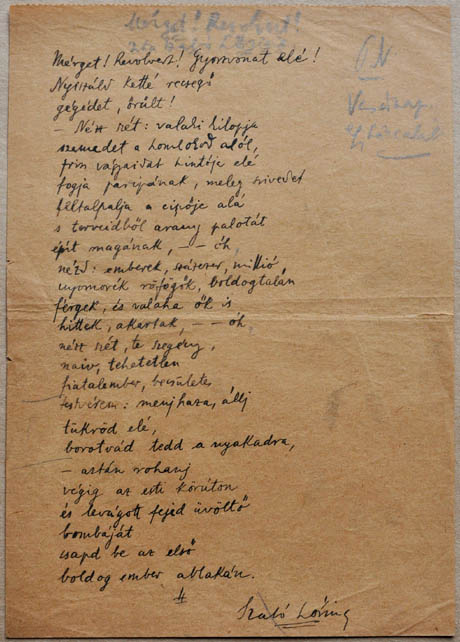 Mérget! Revolvert!
Mérget! Revolvert! Gyorsvonat elé!
Nyiszáld ketté recsegő
gegédet, őrült!
– Nézz szét: valaki kilopja
szemedet a homlokod alól,
friss vágyaidat hintója elé
fogja paripának, meleg szivedet
féltalpalja a cipője alá
s terveidből arany palotát
épít magának, – – óh,
nézd: emberek, százezer, millió
nyomorék röfögők, boldogtalan
férgek, és valaha ők is
hittek, akartak, – – óh,
nézz szét, te szegény,
naiv, tehetetlen
fiatalember, becsületes
testvérem: menj haza, állj
tükröd elé,
borotvád tedd a nyakadra,
– aztán rohanj
végig az esti körúton
és levágott fejed üvöltő
bombáját
csapd be az első
boldog ember ablakán.
Szabó Lőrinc